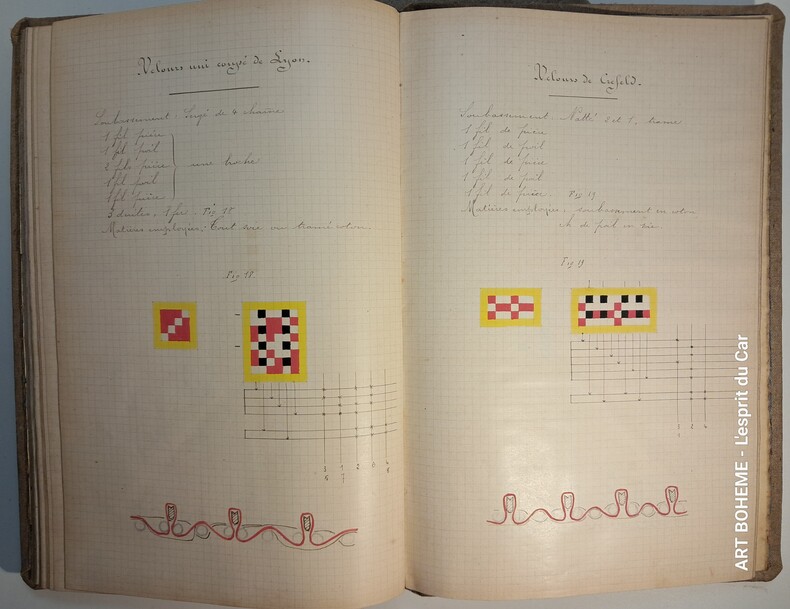 Velours uni coupé de Lyon.
Soubassement : Sergé de 4 chaine
1 fil pièce
1 fil poil
2 fils pièce
1 fil poil
1 fil pièce
3 duites, 1 fer. Fig 18
Matières employées. Tout soie ou tramé coton
Fig 18.
Velours de Crefeld.
Soubassement : Natté 2 et 1, trame
1 fil de pièce
1 fil de poil
1 fil de pièce
1 fil de poil
1 fil de pièce Fig 19
Matières employées, soubassement en coton
et de poil en soie.
Fig 19
ART BOHEME - L'esprit du Car